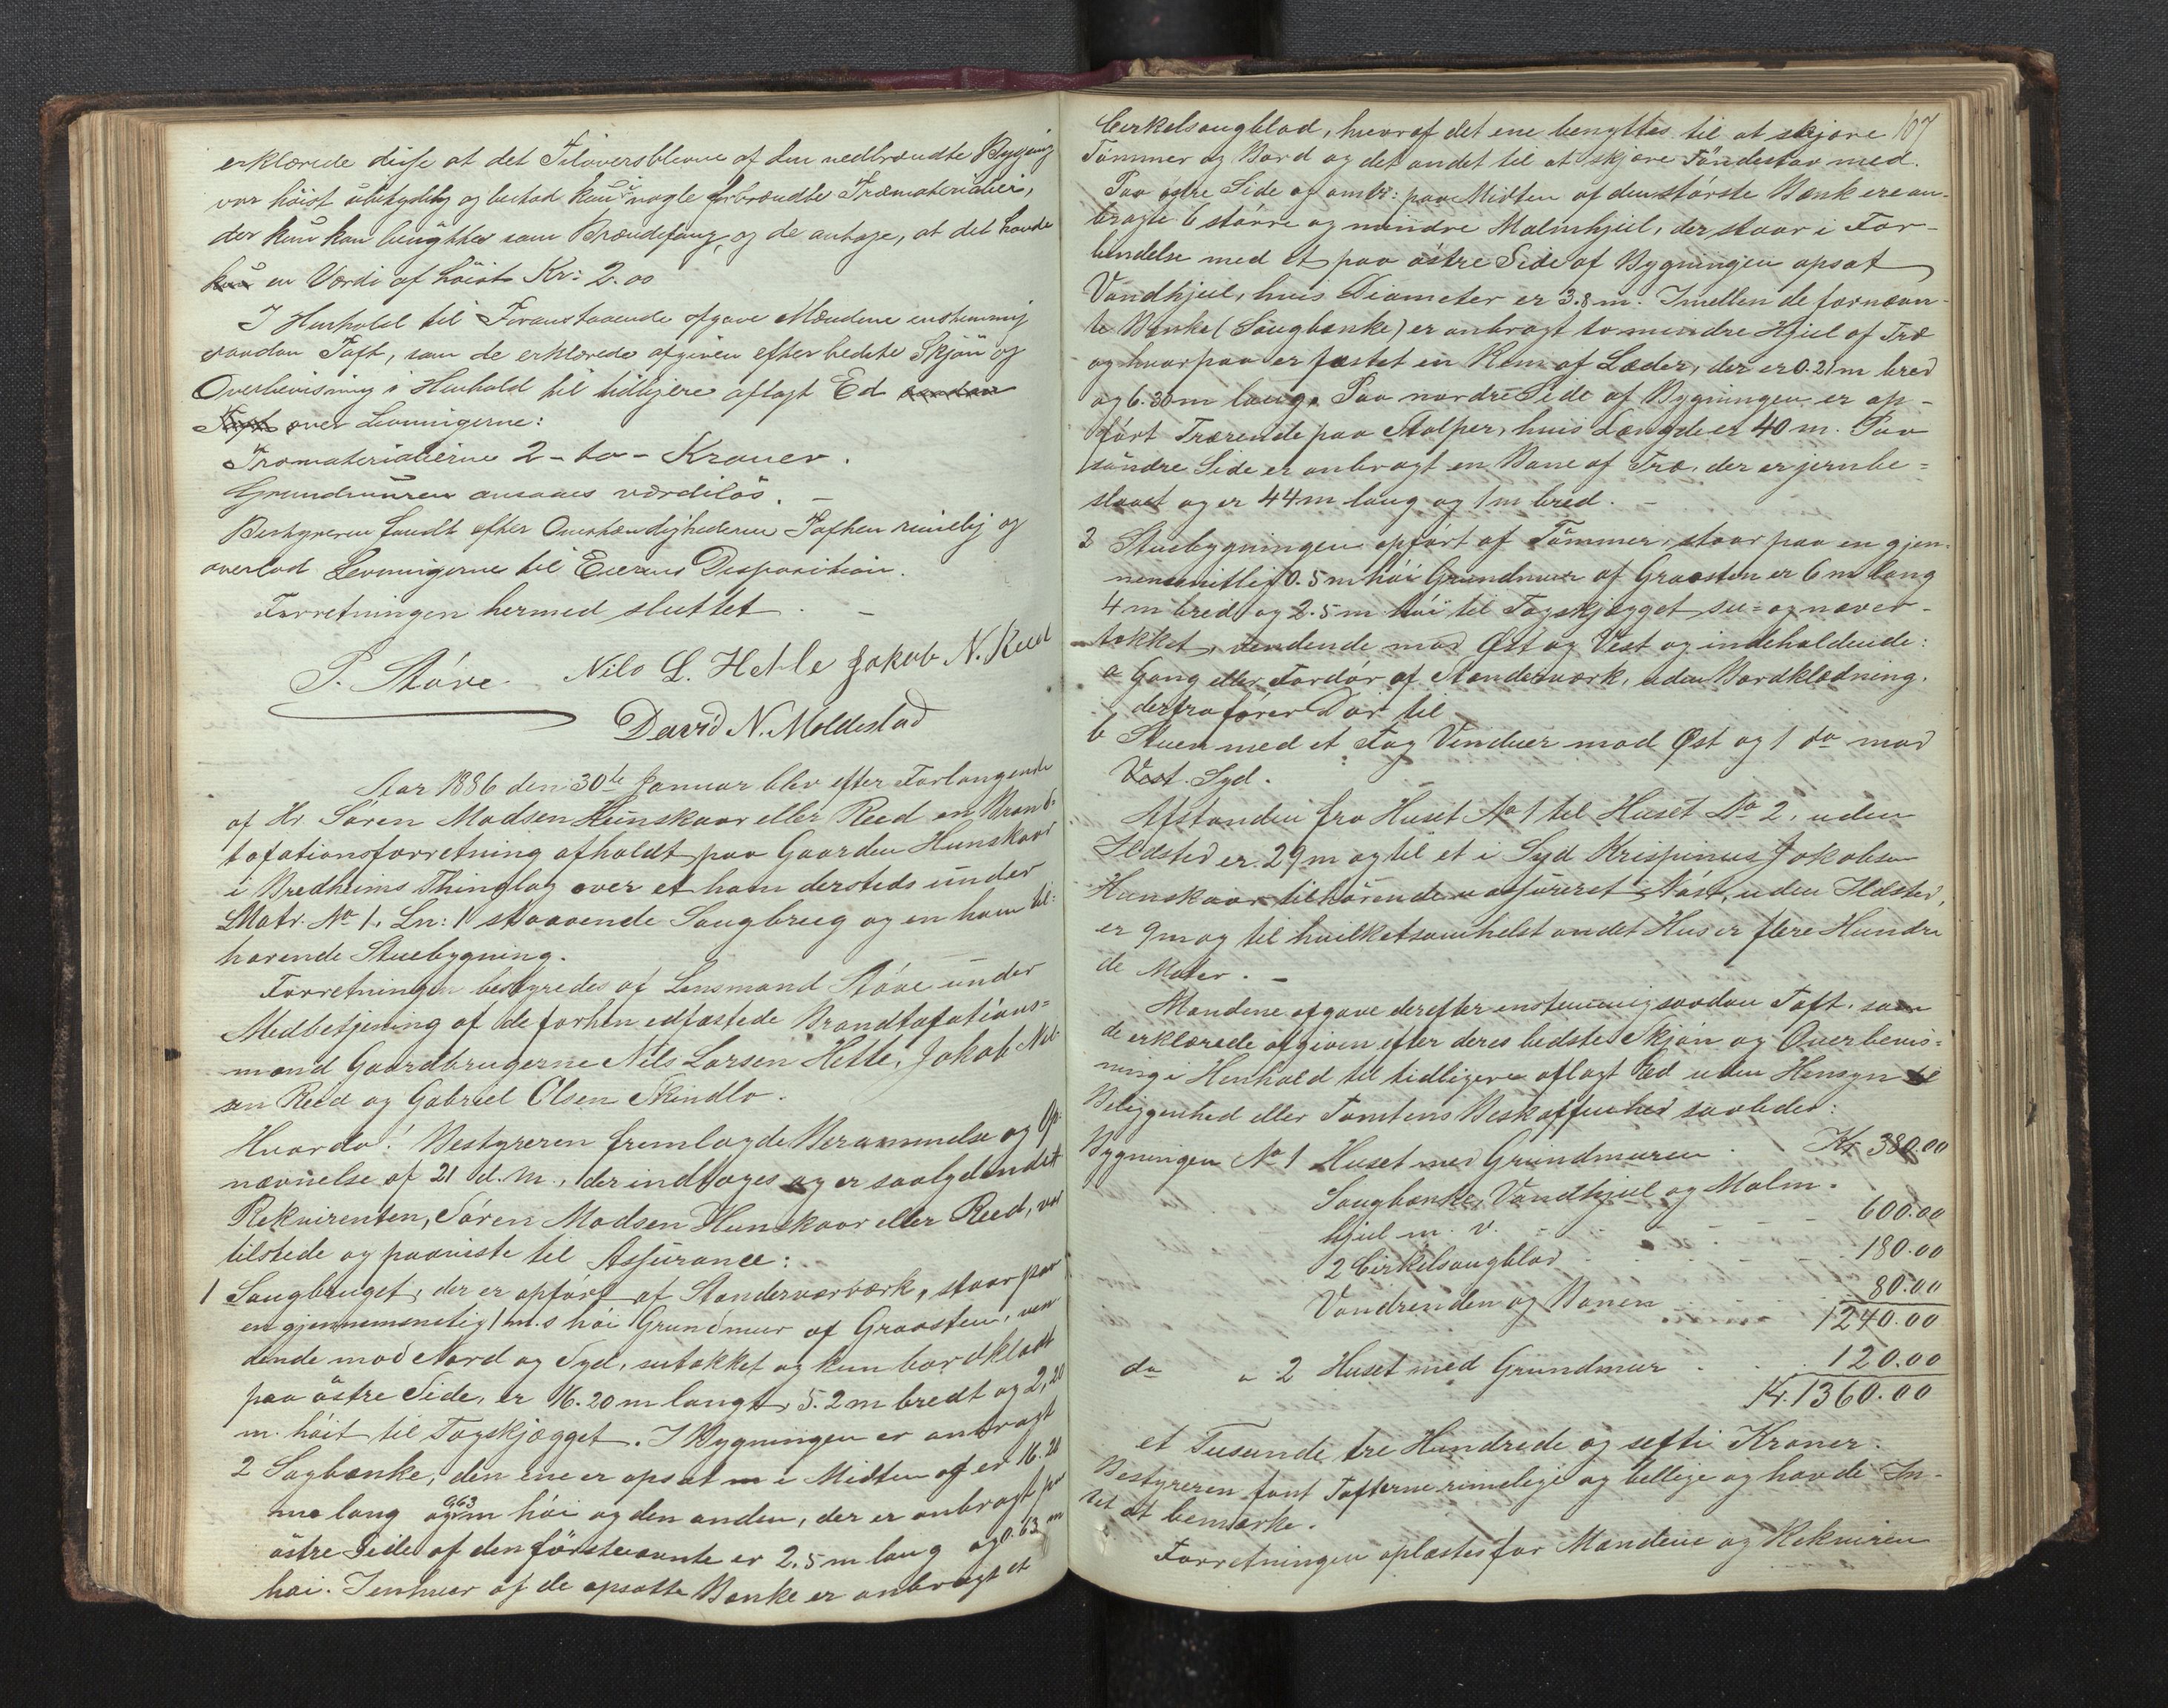 erklærede disse at det Tiloversblevne af den nedbrændte Bygning
var höist ubetydelig og bestod kun i nogle forbrændte Træmaterialier,
der kun kan benyttes som Brændefang, og de antage, at det havde
kun en Værdi af höist Kr: 2.00
I Henhold til Foranstaaende afgave Mændene enstemmig
saadan Taxt, som de erklærede afgiven efter bedste Skjön og
Overbevisning i Henhold til tidligere aflagt Ed saadan
Taxt over Levningerne:
Træmaterialierne 2 - to - Kroner.
Grundmuren ansaaes værdilös. -
Bestyreren fandt efter Omstændighederne Taxten rimelig og
overlod Levningerne til Eierens Disposition.
Forretningen hermed sluttet. -
P. Støve Nils L. Hetle Jakob N. Reed
David N. Moldestad
Aar 1886 den 30te Januar blev efter Forlangende
af Hr. Sören Madsen Hunskaar eller Reed en Brand-
taxationsforretning afholdt paa Gaarden Hunskaar
i Bredheims Thinglag over et ham dersteds under
Matr. No 1. Ln: 1 staaende Saugbrug og en ham til-
hørende Stuebygning.
Forretningen bestyredes af Lensmand Støve under
Medbetjening af de forhen edfæstede Brandtaxations=
mænd Gaardbrugerne Nils Larsen Hetle, Jakob Nil-
sen Reed og Gabriel Olsen Skindlo.
Hvorda! Bestyreren fremlagde Berammelse og Op-
nævnelse af 21 d. M., der indtages og er saalydende
Rekvirenten, Sören Madsen Hunskaar eller Reed, var
tilstede og paaviste til Assurance:
1 Saugbruget, der er opfört af Standerværk, staar paa
en gjennemsnetlig 1 m.s höi Grundmur af Graasten, ven-
dende mod Nord og Syd, sutækket og kun bordklædt
paa östre Side, er 16.20 m langt, 5.2 m bredt og 2,20
m. höit til Tagskjægget. I Bygningen er anbragt
2 Sagbænke, den ene er opsat i Midten af er 16.20
m lang og 0.63 m höi og den anden, der er anbragt paa
östre Side af den förstnævnte er 2.5 m lang og 0.63 m
höi. I enhver af de opsatte Bænke er anbragt et
107
Cirkelsaugblad, hvoraf det ene benyttes til at skjære
Tömmer og Bord og det andet til at skjære Töndestav med.
Paa östre Side og omtr: paa Midten af den störste Bænk ere an-
bragte 6 større og mindre Malmhjul, der staar i For-
bindelse med et paa östre Side af Bygningen opsat
Vandhjul, hvis Diameter er 3.8 m. Imellem de fornævn-
te Bænke (Saugbænke) er anbragt to mindre Hjul af Træ
og hvorpaa er fæstet en Rem af Læder, der er 0.21 m bred
og 6.30 m lang. Paa nordre Side af Bygningen er op-
fört Trærende paa Stolper, hvis Længde er 40 m. Paa
söndre Side er anbragt en Bane af Træ, der er jernbe=
slaaet og er 44 m lang og 1 m bred. -
2 Stuebygningen opfört af Tömmer, staar paa en gjen-
nemsnitlig 0.5 m höi Grundmur af Graasten er 6 m lang
4 m bred og 2.5 m höi til Tagskjægget su- og næver-
tækket, vendende mod Øst og Vest og indeholdende:
a Gang eller Fordör af Standerværk, uden Bordklædning.
derfra fører Dör til
b Stuen med et Fag Vinduer mod Øst og 1 do mod
Vest. Syd.
Afstanden fra Huset No 1 til Huset No 2, uden
Ildsted er 29 m og til et i Syd Krispinus Jakobsen
Hunskaar tilhörende uassureret Nöst, uden Ildsted,
er 9 m og til hvilketsomhelst andet Hus er flere Hundre
de Meter. -
Mændene afgave derefter enstemmig saadan Taxt. som
de erklærede afgiven efter deres bedste Skjön og Overbevis=
ning i Henhold til tidligere aflagt Ed uden Hensyn til
Beliggenhed eller Tomtens Beskaffenhed saaledes:
Bygningen No 1 Huset med Grundmuren . Kr 380.00
Saugbænke, Vandhjul og Malm-
hjul m. v. - - - - - 600.00
2 Cirkelsaugblad . . . . 180.00
Vandrenden og Banen . . . . 80.00
1240.00
do " 2 Huset med Grundmur . . . 120.00
Kr. 1360.00
et Tusunde tre Hundrede og sexti Kroner.
Bestyreren fant Taxterne rimelige og billige og havde In-
tet at bemærke.
Forretningen oplæstes for Mændene og Rekviren